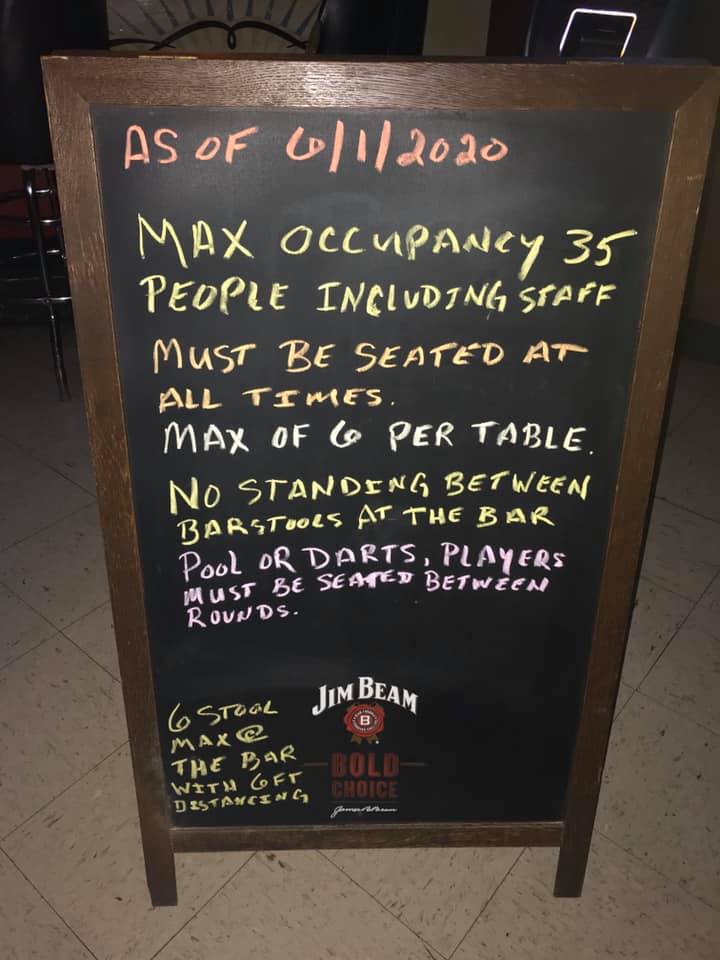 AS OF 6/1/2020
MAX OCCUPANCY 35
PEOPLE INCLUDING STAFF
MUST BE SEATED AT
ALL TIMES.
MAX OF 6 PER TABLE.
NO STANDING BETWEEN
BARSTOOLS AT THE BAR
POOL OR DARTS, PLAYERS
MUST BE SEATED BETWEEN
ROUNDS.
6 STOOL
MAX @
THE BAR
WITH 6FT
DISTANCING
JIM BEAM
B
BOLD
CHOICE